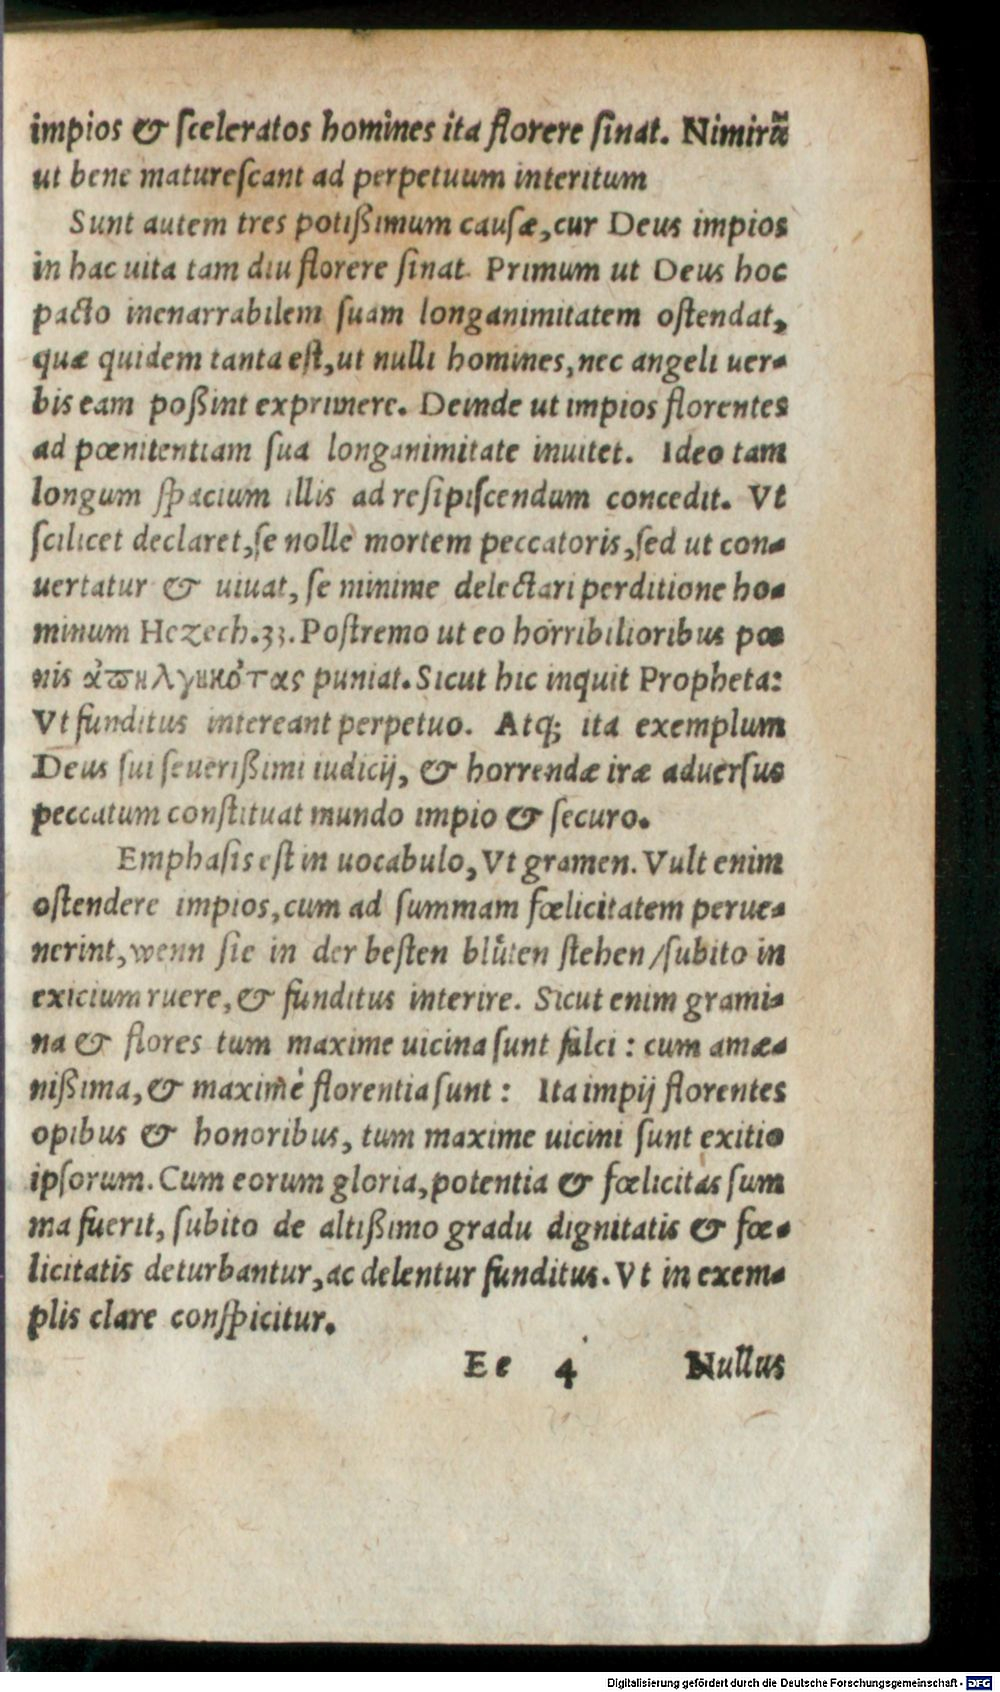 impios & ſceleratos homines ita florere ſinat. Nimirũ
ut bene matureſcant ad perpetuum interitum
Sunt autem tres potißimum cauſæ, cur Deus impios
in hac uita tam diu florere ſinat. Primum ut Deus hoc
pacto inenarrabilem ſuam longanimitatem oſtendat,
quæ quidem tanta eſt, ut nulli homines, nec angeli uer-
bis eam poßint exprimere. Deinde ut impios florentes
ad pœnitentiam ſua longanimitate inuitet. Ideo tam
longum ſpacium illis ad reſipiſcendum concedit. Vt
ſcilicet declaret, ſe nolle mortem peccatoris, ſed ut con-
uertatur & uiuat, ſe minime delectari perditione ho-
minum Hezech.33. Poſtremo ut eo horribilioribus pœ
nis ἀπηλγηκότας puniat. Sicut hic inquit Propheta:
Vt funditus intereant perpetuo. Atq; ita exemplum
Deus ſui ſeuerißimi iudicij, & horrendæ iræ aduerſus
peccatum conſtituat mundo impio & ſecuro.
Emphaſis eſt in uocabulo, Vt gramen. Vult enim
oſtendere impios, cum ad ſummam fœlicitatem perue-
nerint, wenn ſie in der beſten blůten ſtehen / ſubito in
exicium ruere, & funditus interire. Sicut enim grami-
na & flores tum maxime uicina ſunt falci : cum amœ-
nißima, & maximè florentia ſunt : Ita impij florentes
opibus & honoribus, tum maxime uicini ſunt exitio
ipſorum. Cum eorum gloria, potentia & fœlicitas ſum
ma fuerit, ſubito de altißimo gradu dignitatis & fœ-
licitatis deturbantur, ac delentur funditus. Vt in exem-
plis clare conſpicitur.
Ee 4 Nullus
Digitalisierung gefördert durch die Deutsche Forschungsgemeinschaft - DFG